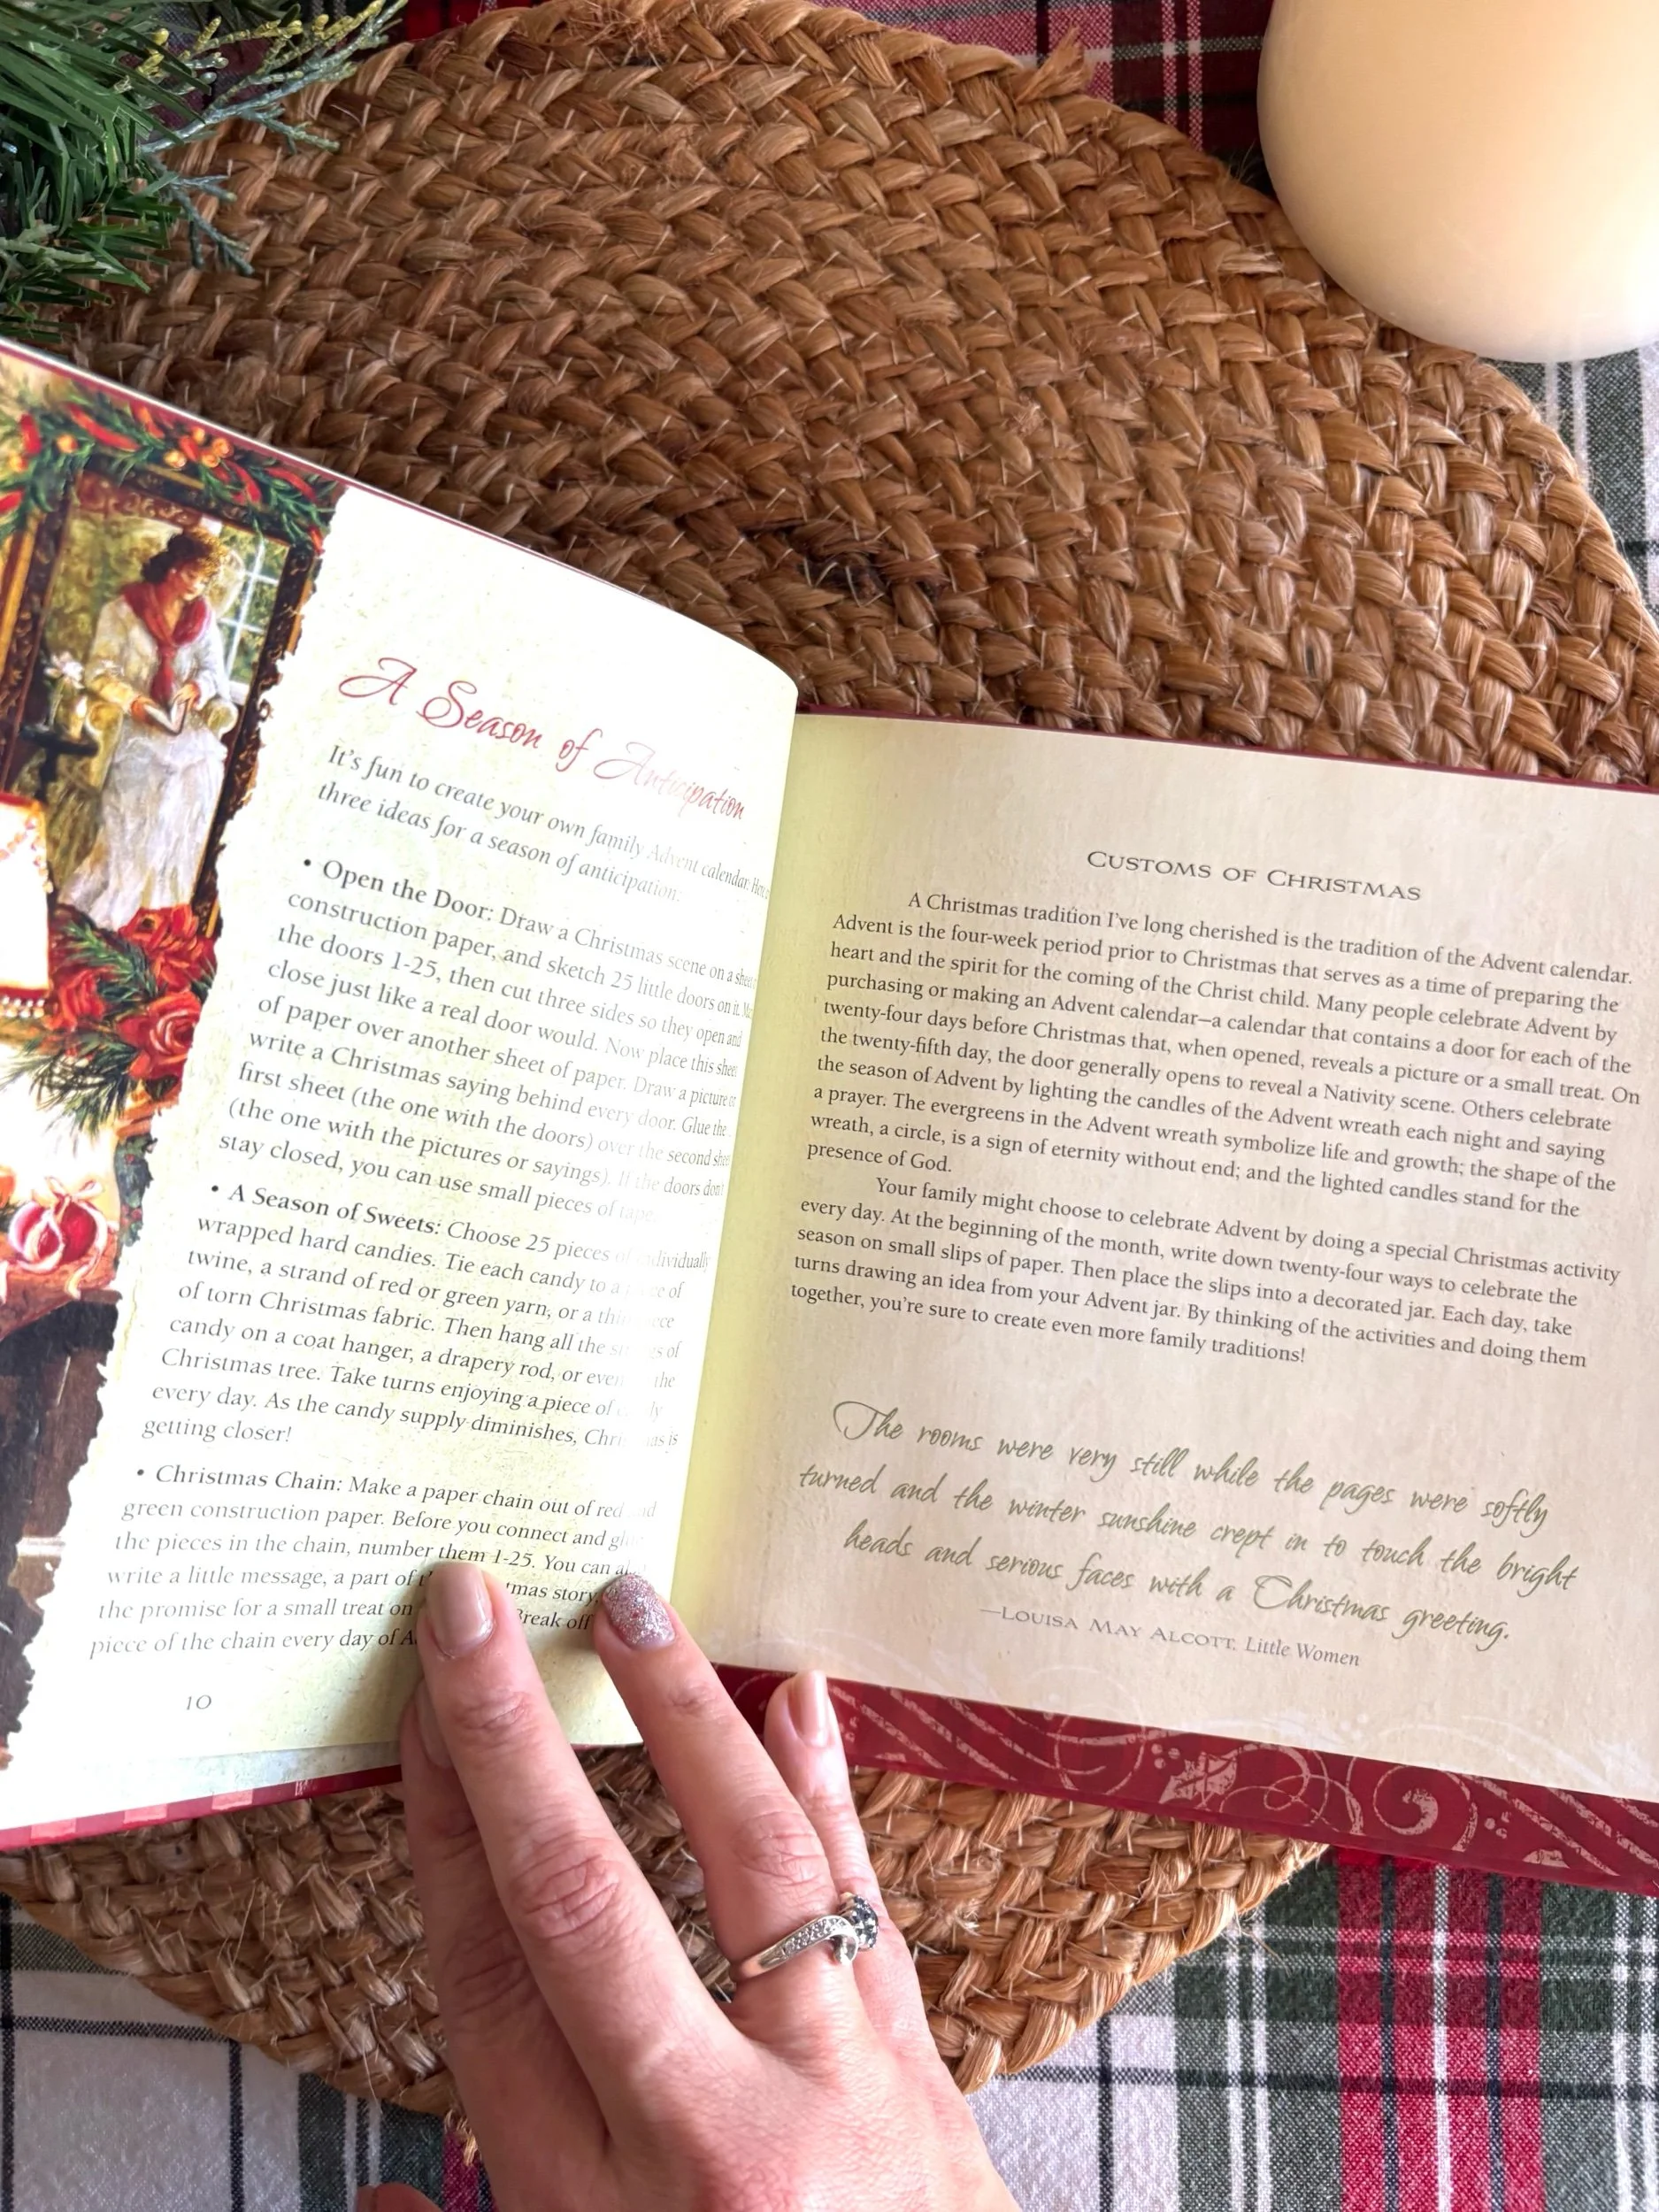 A Season of Anticipation
It's fun to create your own family Advent calendar.
three ideas for a season of anticipation.
• Open the Door: Draw a Christmas scene on a
construction paper, and sketch 25 little doors on it.
the doors 1-25, then cut three sides so they open and
close just like a real door would. Now place this sheet
of paper over another sheet of paper. Draw a picture or
write a Christmas saying behind every door. Glue the
first sheet (the one with the doors) over the second sheet
(the one with the pictures or sayings). If the doors don't
stay closed, you can use small pieces of tape.
• A Season of Sweets: Choose 25 pieces of individually
wrapped hard candies. Tie each candy to a of
twine, a strand of red or green yarn, or a
of torn Christmas fabric. Then hang all the of
candy on a coat hanger, a drapery rod, or even the
Christmas tree. Take turns enjoying a piece of
every day. As the candy supply diminishes, Christmas is
getting closer!
• Christmas Chain: Make a paper chain out of red and
green construction paper. Before you connect and
the pieces in the chain, number them 1-25. You can
write a little message, a part of story,
the promise for a small treat on Break off
piece of the chain every day of
10
Customs of Christmas
A Christmas tradition I've long cherished is the tradition of the Advent calendar.
Advent is the four-week period prior to Christmas that serves as a time of preparing the
heart and the spirit for the coming of the Christ child. Many people celebrate Advent by
purchasing or making an Advent calendar—a calendar that contains a door for each of the
twenty-four days before Christmas that, when opened, reveals a picture or a small treat. On
the twenty-fifth day, the door generally opens to reveal a Nativity scene. Others celebrate
the season of Advent by lighting the candles of the Advent wreath each night and saying
a prayer. The evergreens in the Advent wreath symbolize life and growth; the shape of the
wreath, a circle, is a sign of eternity without end; and the lighted candles stand for the
presence of God.
Your family might choose to celebrate Advent by doing a special Christmas activity
every day. At the beginning of the month, write down twenty-four ways to celebrate the
season on small slips of paper. Then place the slips into a decorated jar. Each day, take
turns drawing an idea from your Advent jar. By thinking of the activities and doing them
together, you're sure to create even more family traditions!
The rooms were very still while the pages were softly
turned and the winter sunshine crept in to touch the bright
heads and serious faces with a Christmas greeting.
—Louisa May Alcott, Little Women